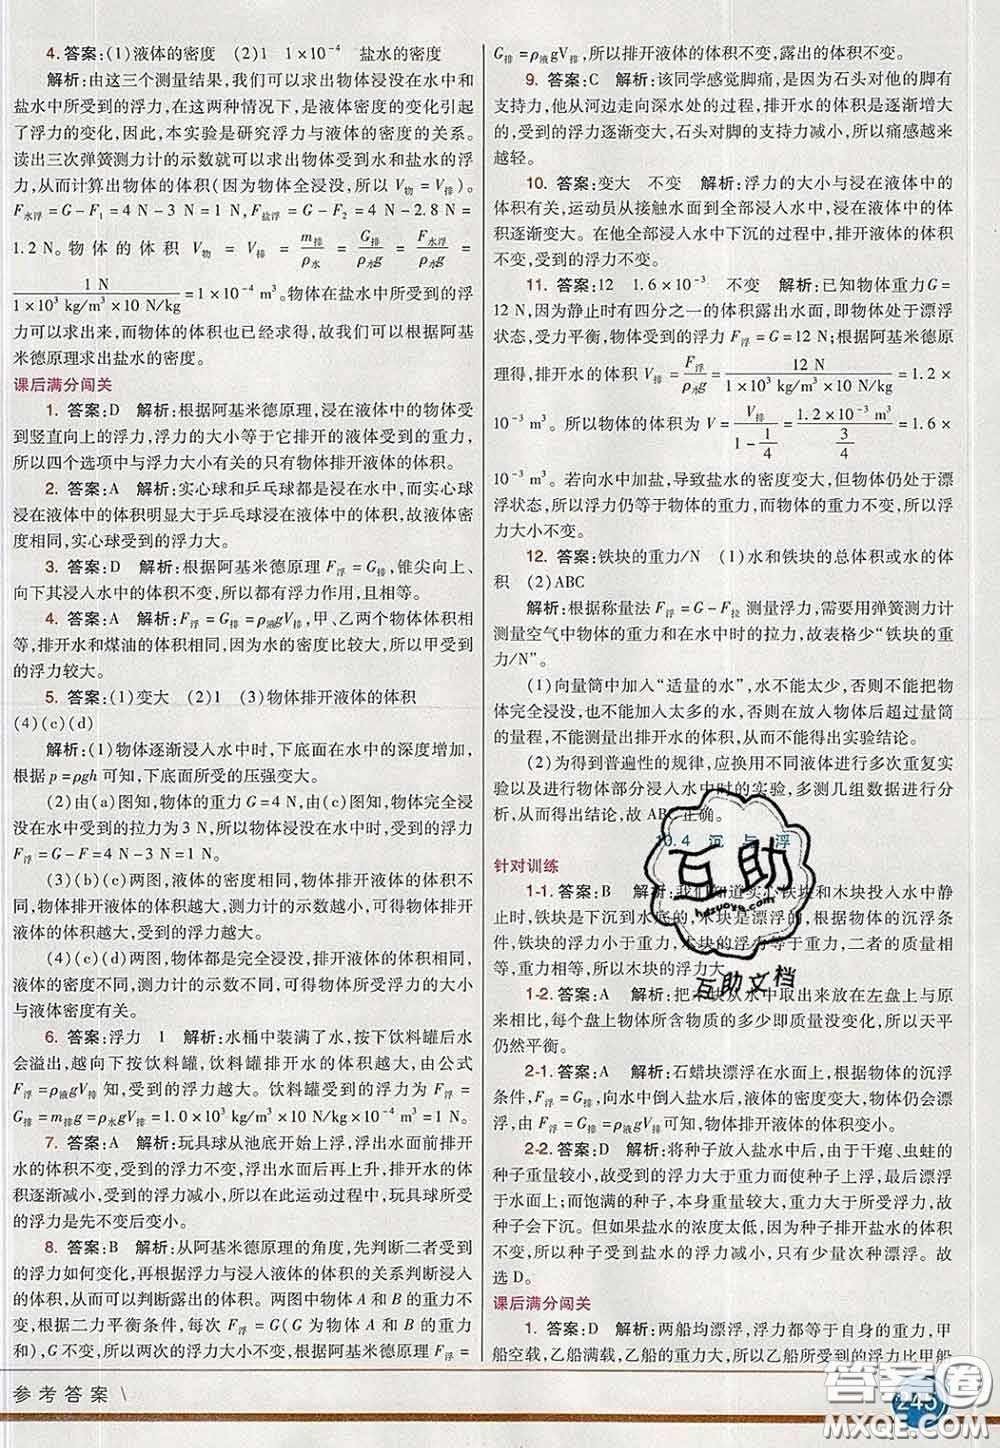 4. 答案:(1)液体的密度 (2)1 1×10⁻⁴ 盐水的密度
解析:由这三个测量结果,我们可以求出物体浸没在水中和
盐水中所受到的浮力,在这两种情况下,是液体密度的变化引起
了浮力的变化,因此,本实验是研究浮力与液体的密度的关系。
读出三次弹簧测力计的示数就可以求出物体受到水和盐水的浮
力,从而计算出物体的体积(因为物体全浸没,所以 V物 = V排)。
F水浮 = G - F₁ = 4 N - 3 N = 1 N, F盐浮 = G - F₂ = 4 N - 2.8 N =
1.2 N。物体的体积 V物 = V排 = m排/ρ水 = G排/ρ水g = F水浮/ρ水g =
1 N/(1×10³ kg/m³×10 N/kg) = 1×10⁻⁴ m³。物体在盐水中所受到的浮
力可以求出来,而物体的体积也已经求得,故我们可以根据阿基
米德原理求出盐水的密度。
课后满分闯关
1. 答案:D 解析:根据阿基米德原理,浸在液体中的物体受
到竖直向上的浮力,浮力的大小等于它排开的液体受到的重力,
所以四个选项中与浮力大小有关的只有物体排开液体的体积。
2. 答案:A 解析:实心球和乒乓球都是浸在水中,而实心球
浸在液体中的体积明显大于乒乓球浸在液体中的体积,故液体密
度相同,实心球受到的浮力大。
3. 答案:D 解析:根据阿基米德原理 F浮 = G排,锥尖向上、
向下其浸入水中的体积不变,所以都有浮力作用,且相等。
4. 答案:A 解析:F浮 = G排 = ρ液gV排,甲、乙两个物体体积相
等,排开水和煤油的体积相同,因为水的密度比较大,所以甲受到
的浮力较大。
5. 答案:(1)变大 (2)1 (3)物体排开液体的体积
(4)(c)(d)
解析:(1)物体逐渐浸入水中时,下底面在水中的深度增加,
根据 p = ρgh 可知,下底面所受的压强变大。
(2)由(a)图知,物体的重力 G = 4 N,由(c)图知,物体完全浸
没在水中受到的拉力为 3 N,所以物体浸没在水中时,受到的浮力
F浮 = G - F = 4 N - 3 N = 1 N。
(3)(b)(c)两图,液体的密度相同,物体排开液体的体积不
同,物体排开液体的体积越大,测力计的示数越小,可得物体排开
液体的体积越大,受到的浮力越大。
(4)(c)(d)两图,物体都是完全浸没,排开液体的体积相同,
液体的密度不同,测力计的示数不同,可得物体所受浮力的大小
与液体密度有关。
6. 答案:浮力 1 解析:水桶中装满了水,按下饮料罐后水
会溢出,越向下按饮料罐,饮料罐排开水的体积越大,由公式
F浮 = ρ液gV排 知,受到的浮力越大。饮料罐所受到的浮力 F浮 =
G排 = m排g = ρ水gV排 = 1.0×10³ kg/m³×10 N/kg×10⁻⁴ m³ = 1 N。
7. 答案:A 解析:玩具球从池底开始上浮,浮出水面前排开
水的体积不变,受到的浮力不变,浮出水面后再上升,排开水的体
积逐渐减小,浮力逐渐变小,所以在此运动过程中,玩具球所受
的浮力是先不变后变小。
8. 答案:B 解析:从阿基米德原理的角度,先判断二者受到
的浮力如何变化,再根据浮力与浸入液体的体积的关系判断浸入
的体积,从而可以判断露出的体积。两图中物体 A 和 B 的重力不
变,根据二力平衡条件,每次 F浮 = G(G 为物体 A 和 B 的重力
和),G 不变,所以两次的浮力大小不变,根据阿基米德原理 F浮 =
G排 = ρ液gV排,所以排开液体的体积不变,露出的体积不变。
9. 答案:C 解析:该同学感觉脚痛,是因为石头对他的脚有
支持力,他从河边走向深水处的过程,排开水的体积是逐渐增大
的,受到的浮力逐渐变大,石头对脚的支持力减小,所以痛感越来
越轻。
10. 答案:变大 不变 解析:浮力的大小与浸在液体中的
体积有关,运动员从接触水面到全部浸入水中,浸在液体中的体
积逐渐变大。在他全部浸入水中下沉的过程中,排开液体的体积
不变,受到的浮力不变。
11. 答案:12 1.6×10⁻³ 不变 解析:已知物体重力G =
12 N,因为静止时有四分之一的体积露出水面,即物体处于漂浮
状态,受力平衡,物体受到的浮力 F浮 = G = 12 N;根据阿基米德原
理得,排开水的体积 V排 = F浮/ρ水g = 12 N/(1×10³ kg/m³×10 N/kg) = 1.2×
10⁻³ m³。所以物体的体积为 V = V排/(1-1/4) = (1.2×10⁻³ m³)/(3/4) = 1.6×
10⁻³ m³。若向水中加盐,导致盐水的密度变大,但物体仍处于漂
浮状态,所以浮力仍等于物体的重力,而物体的重力不变,所以浮
力大小不变。
12. 答案:铁块的重力/N (1)水和铁块的总体积或水的体
积 (2)ABC
解析:根据称量法 F浮 = G - F拉 测量浮力,需要用弹簧测力计
测量空气中物体的重力和在水中时的拉力,故表格少“铁块的重
力/N”。
(1)向量筒中加入“适量的水”,水不能太少,否则不能把物
体完全浸没,也不能加入太多的水,否则在放入物体后超过量筒
的量程,不能测量出排开水的体积,从而不能得出实验结论。
(2)为得到普遍性的规律,应换用不同液体进行多次重复实
验以及进行物体部分浸入水中时的实验,多测几组数据进行分
析,从而得出结论,故 ABC 正确。
10.4 沉与浮
针对训练
1-1. 答案:B 解析:我们知道实心铁块和木块投入水中静
止时,铁块是下沉到水底的,木块是漂浮的,根据物体的沉浮条
件,铁块的浮力小于重力,木块的浮力等于重力,二者的质量相
等,重力相等,所以木块的浮力大。
1-2. 答案:A 解析:把木块从水中取出来放在左盘上与原
来相比,每个盘上物体所含物质的多少即质量没变化,所以天平
仍然平衡。
2-1. 答案:A 解析:石蜡块浮在水面上,根据物体的沉浮
条件,F浮 = G物,向水中倒入盐水后,液体密度变大,物体仍会漂
浮,由 F浮 = G排 = ρ液gV排 可知,物体排开液体的体积变小。
2-2. 答案:D 解析:将种子放入盐水中后,由于干瘪、虫蛀的
种子重量较小,故受到的浮力大于重力而使种子上浮,最后漂浮
于水面上;而饱满的种子,本身重量较大,重力大于所受浮力,故
种子会下沉。但如果盐水的浓度太低,因为种子排开盐水的体积
不变,所以种子受到盐水的浮力减小,就会出现少量次种漂浮。故
选 D。
课后满分闯关
1. 答案:D 解析:两船均漂浮,浮力都等于自身的重力,甲
船空载,乙船满载,乙船的重力大,所以乙船所受浮力比甲船
参考答案
245
互助
hdzuoye.com
互助文档
答案圈
MXQE.COM